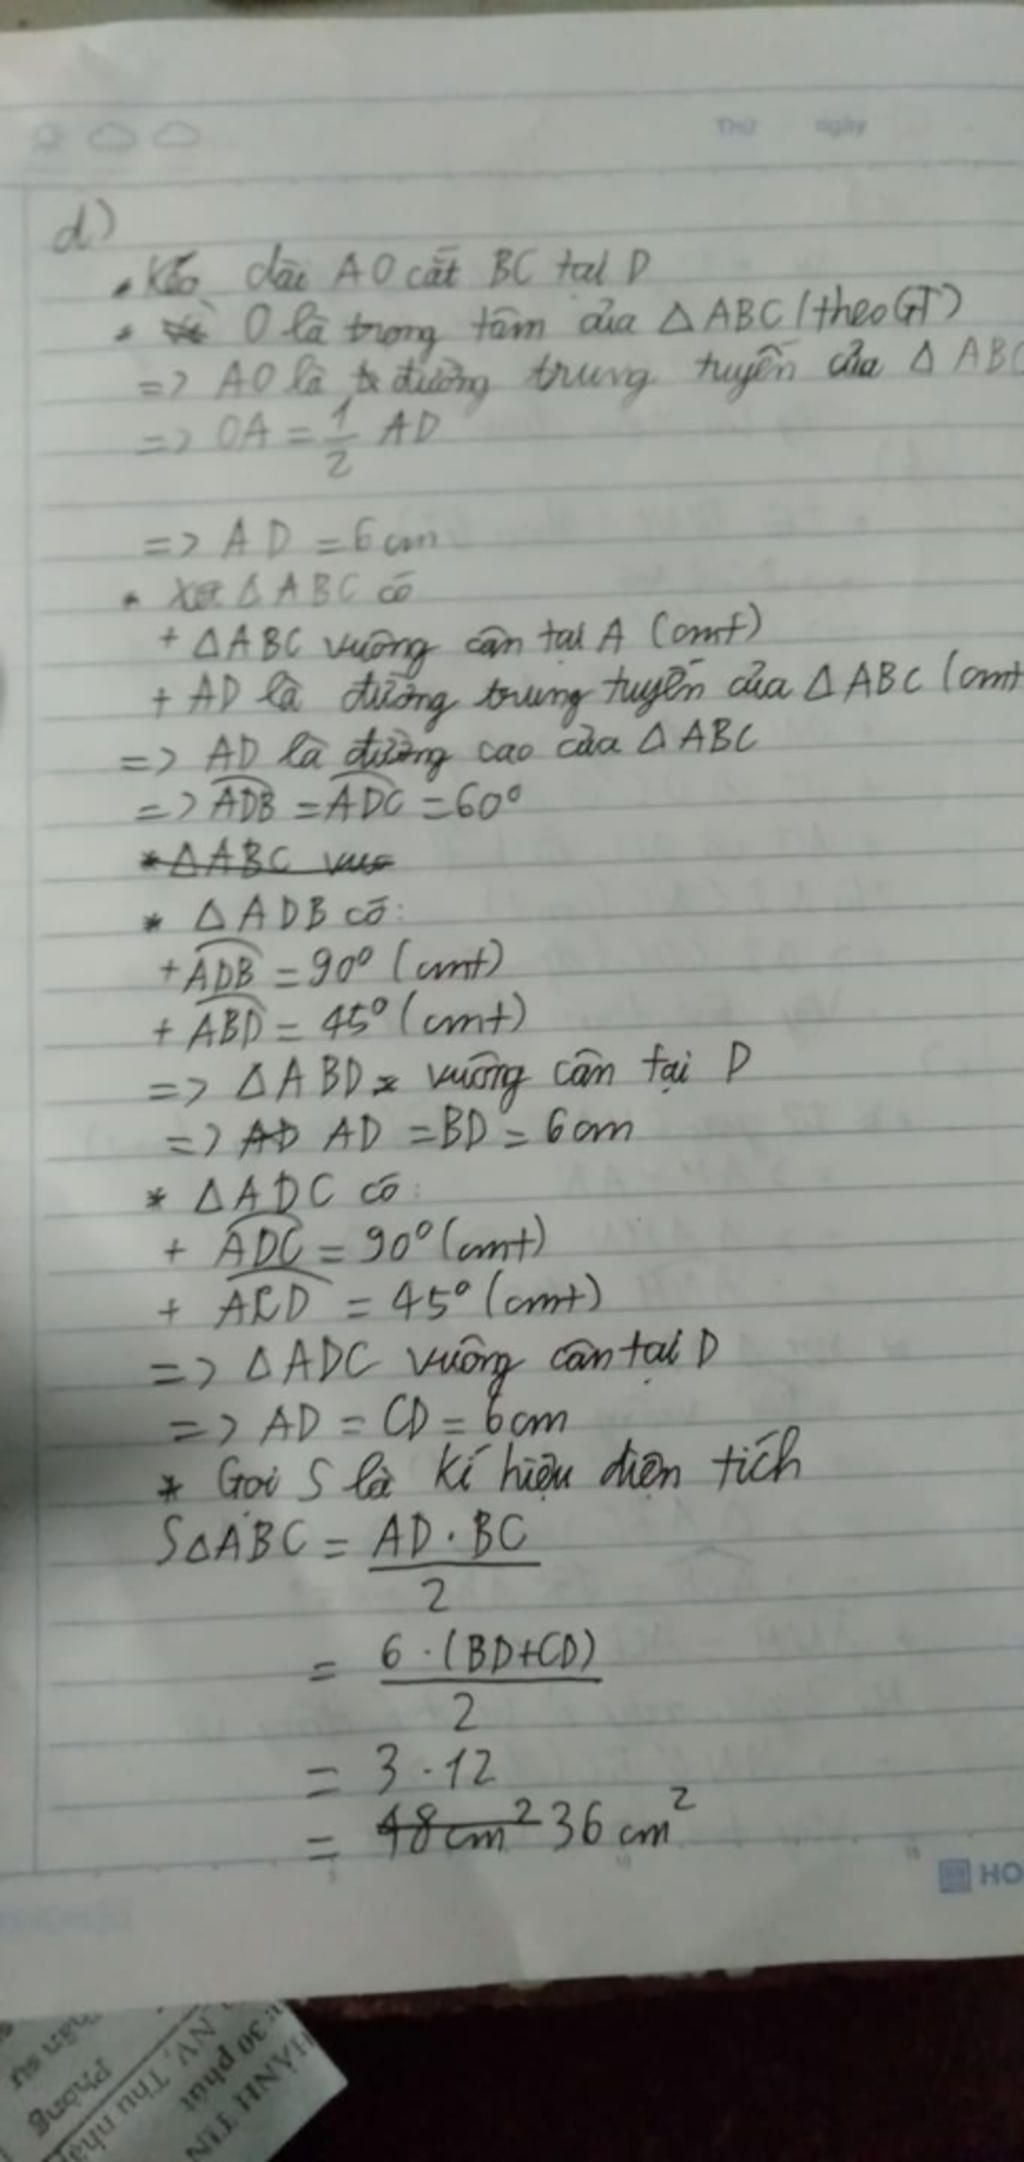 Thứ ngày
d)
• Kéo dài AO cắt BC tại D
• O là trọng tâm của △ABC (theo GT)
=> AO là đường trung tuyến của △ABC
=> OA = 1/2 AD
=> AD = 6cm
• Xét △ABC có
+ △ABC vuông cân tại A (cmt)
+ AD là đường trung tuyến của △ABC (cmt
=> AD là đường cao của △ABC
=> ADB = ADC = 60°
* △ABC vuo
* △ADB có:
+ ADB = 90° (cmt)
+ ABD = 45° (cmt)
=> △ABD vuông cân tại D
=> AD AD = BD = 6cm
* △ADC có:
+ ADC = 90° (cmt)
+ ACD = 45° (cmt)
=> △ADC vuông cân tại D
=> AD = CD = 6cm
* Gọi S là kí hiệu diện tích
S△ABC = AD . BC / 2
= 6 . (BD+CD) / 2
= 3 . 12
= 48cm² 36cm²
HO
HÀNH TIN
: 30 phút
NV, Thu nhậ
Phòng